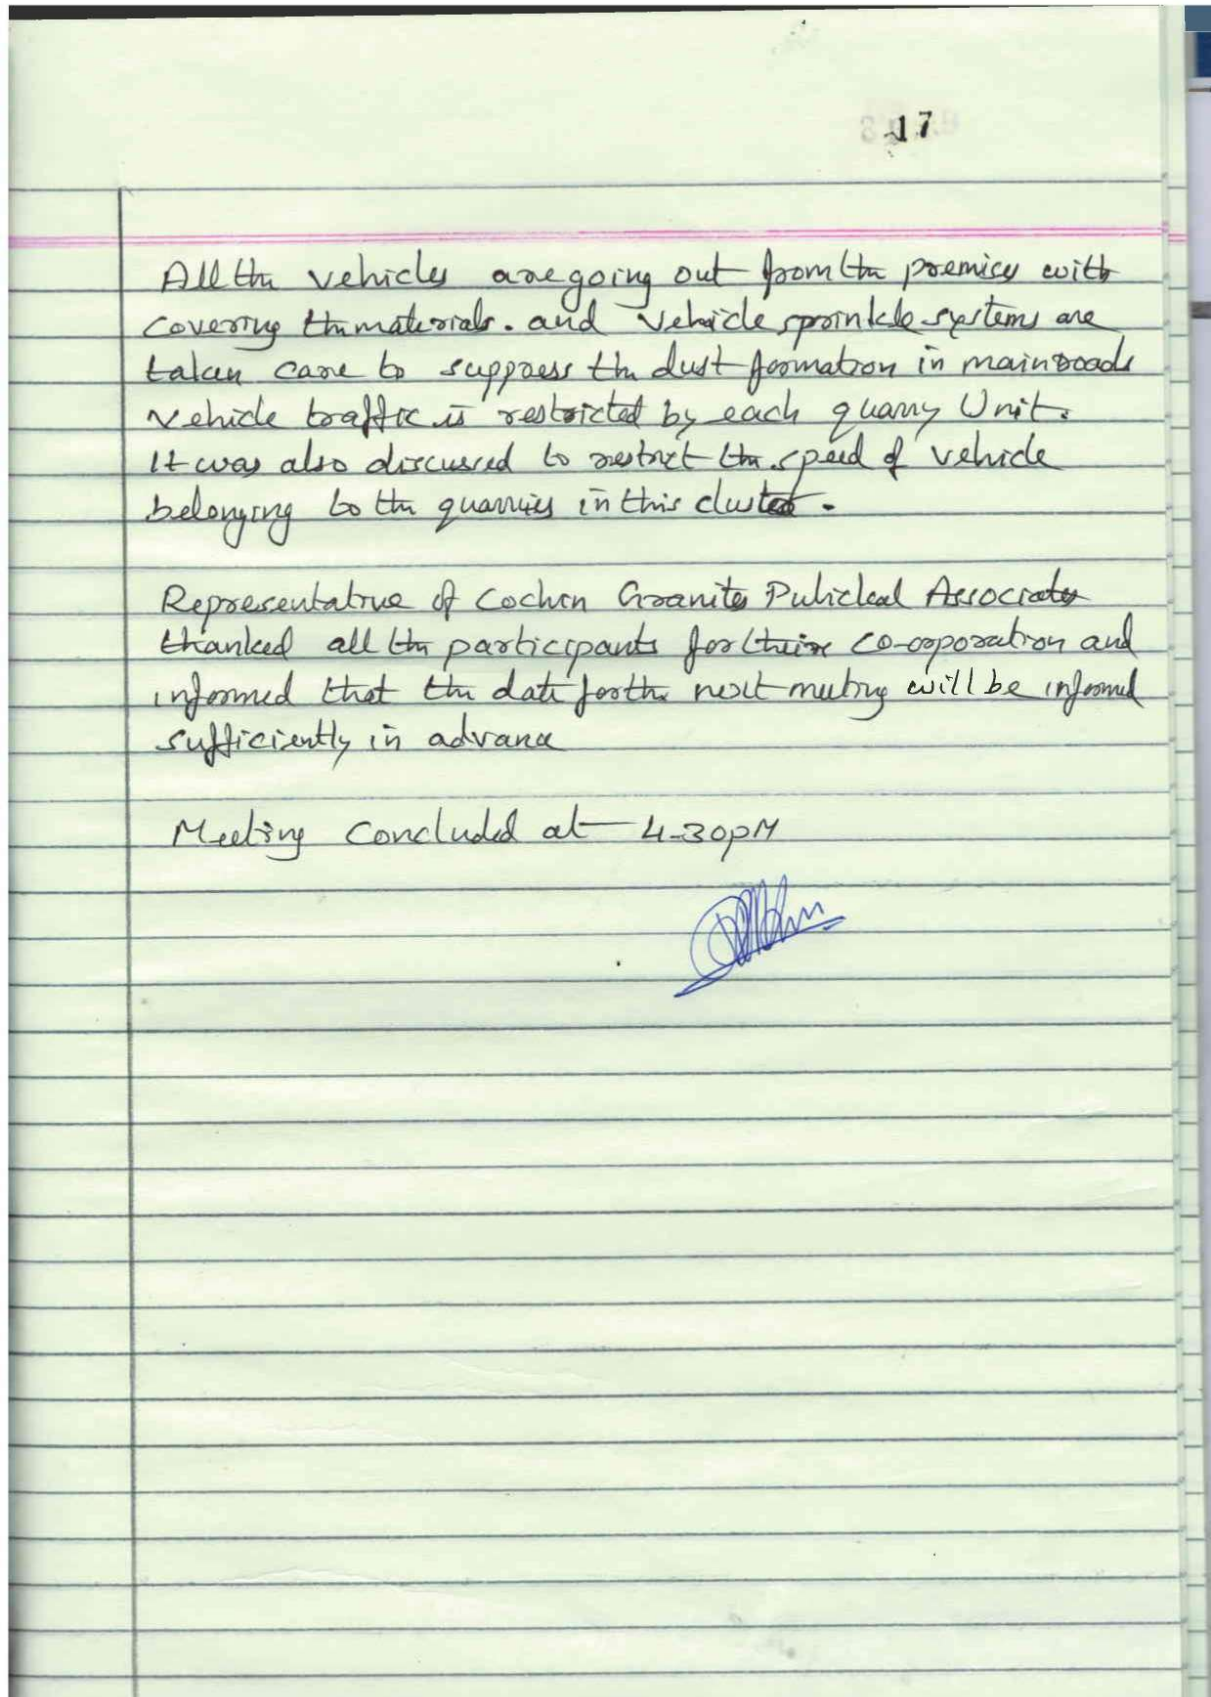 17
All the vehicles are going out from the premises with
covering the materials. and vehicle sprinkle systems are
taken care to suppress the dust formation in main roads
vehicle traffic is restricted by each quarry Unit.
It was also discussed to restrict the speed of vehicle
belonging to the quarries in this cluster.
Representative of Cochin Granites Pulickal Associates
thanked all the participants for their co-orporation and
informed that the date for the next meeting will be informed
sufficiently in advance
Meeting Concluded at 4-30pM